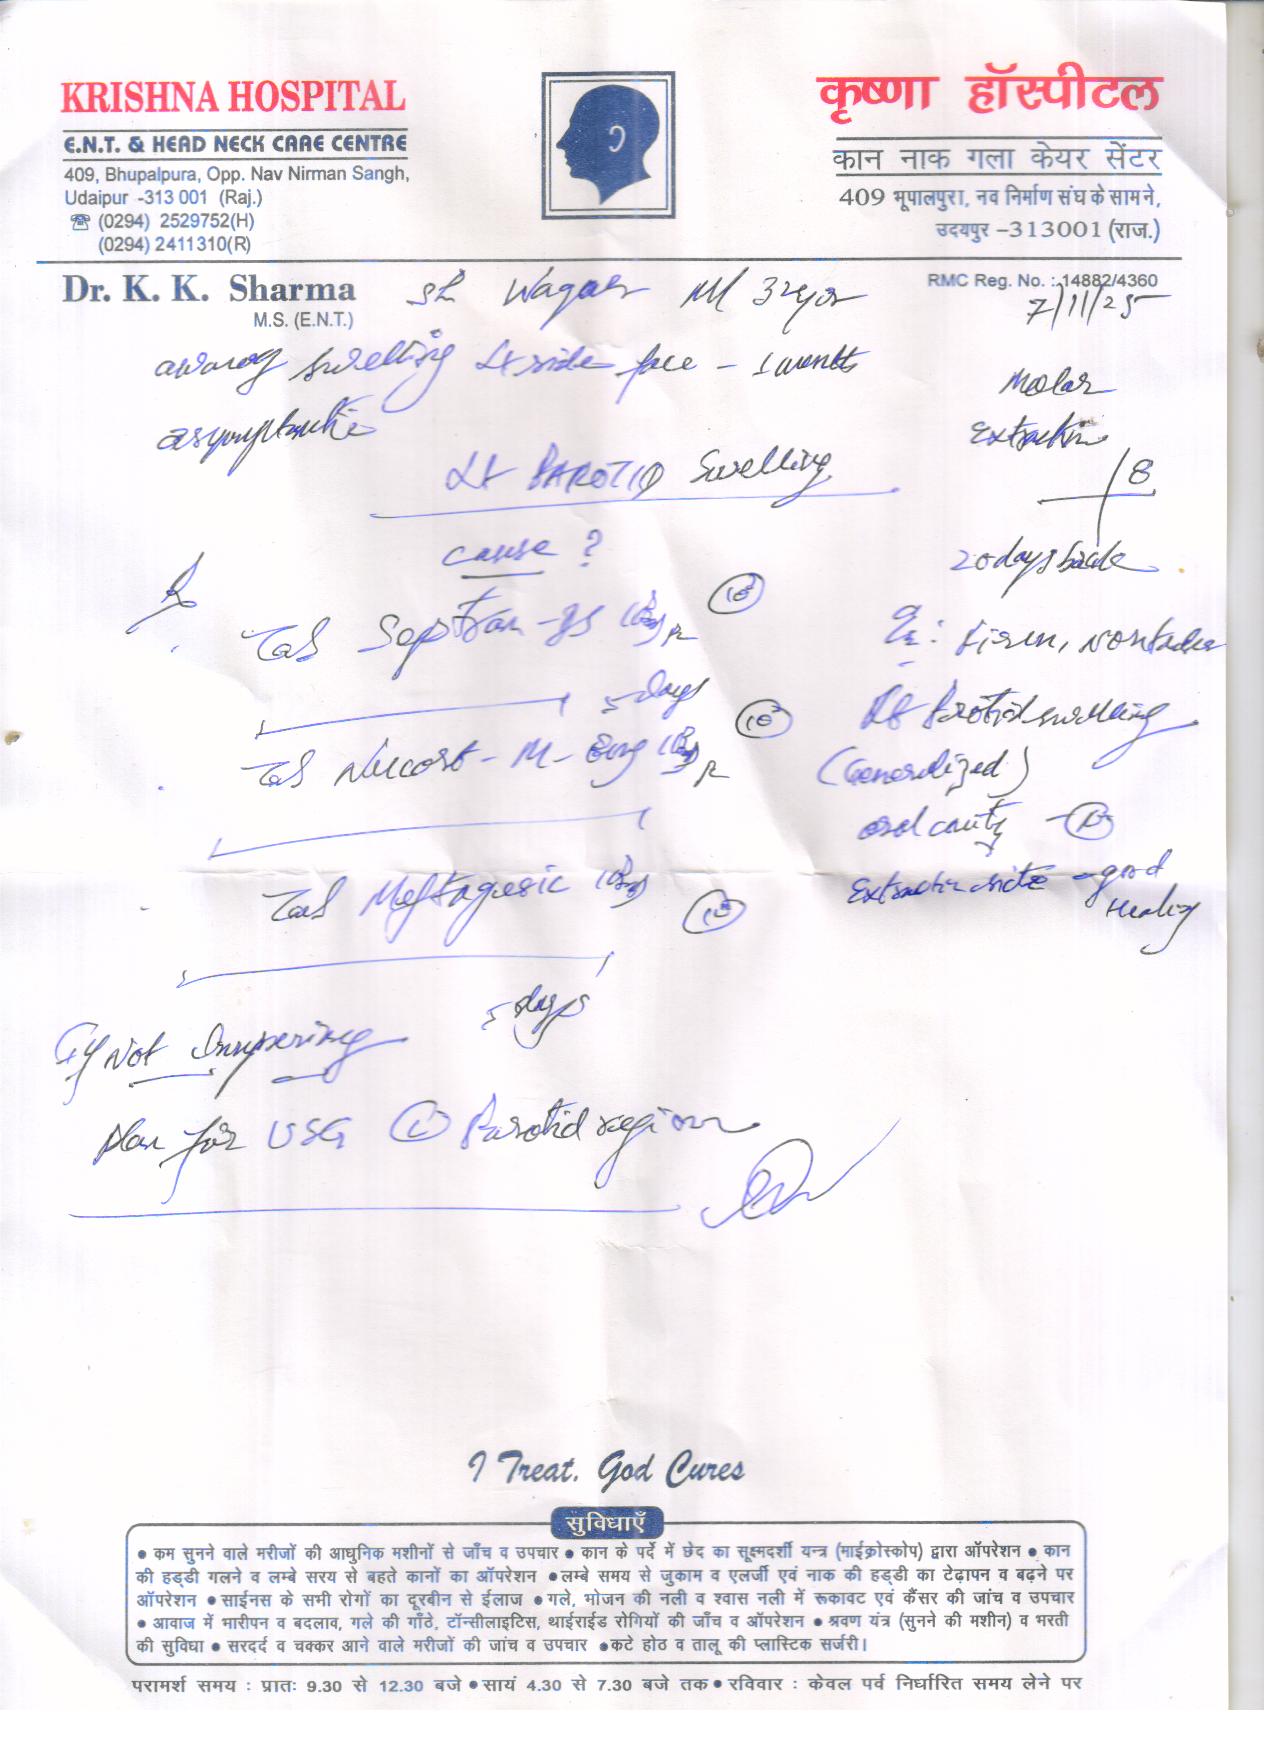 KRISHNA HOSPITAL
E.N.T. & HEAD NECK CARE CENTRE
409, Bhupalpura, Opp. Nav Nirman Sangh,
Udaipur -313 001 (Raj.)
☎ (0294) 2529752(H)
(0294) 2411310(R)
कृष्णा हॉस्पीटल
कान नाक गला केयर सेंटर
409 भूपालपुरा, नव निर्माण संघ के सामने,
उदयपुर -313001 (राज.)
Dr. K. K. Sharma
M.S. (E.N.T.)
RMC Reg. No. : 14882/4360
Sh Wagar M 32yor
7/11/25
swelling Lt side face - 1 month
asymptomatic
Molar
Extraction
8
20 days back
Lt PAROTID Swelling
cause ?
Rx
Tab Septran-DS
10
5 days
Tab M
10
Tab Meftagesic
10
5 days
: Firm, nontender
Lt Parotid swelling
(Generalized)
oral cavity -
Extraction site - good
Healing
If Not Improving
Plan for USG (L) Parotid region
I Treat, God Cures
सुविधाएँ
● कम सुनने वाले मरीजों की आधुनिक मशीनों से जाँच व उपचार ● कान के पर्दे में छेद का सूक्ष्मदर्शी यन्त्र (माईक्रोस्कोप) द्वारा ऑपरेशन ● कान
की हड्डी गलने व लम्बे सरय से बहते कानों का ऑपरेशन ● लम्बे समय से जुकाम व एलर्जी एवं नाक की हड्डी का टेढ़ापन व बढ़ने पर
ऑपरेशन ● साईनस के सभी रोगों का दूरबीन से ईलाज ● गले, भोजन की नली व श्वास नली में रूकावट एवं कैंसर की जांच व उपचार
● आवाज में भारीपन व बदलाव, गले की गाँठे, टॉन्सीलाइटिस, थाईराईड रोगियों की जाँच व ऑपरेशन ● श्रवण यंत्र (सुनने की मशीन) व भरती
की सुविधा ● सरदर्द व चक्कर आने वाले मरीजों की जांच व उपचार ● कटे होठ व तालू की प्लास्टिक सर्जरी।
परामर्श समय : प्रातः 9.30 से 12.30 बजे ● सायं 4.30 से 7.30 बजे तक ● रविवार : केवल पर्व निर्धारित समय लेने पर